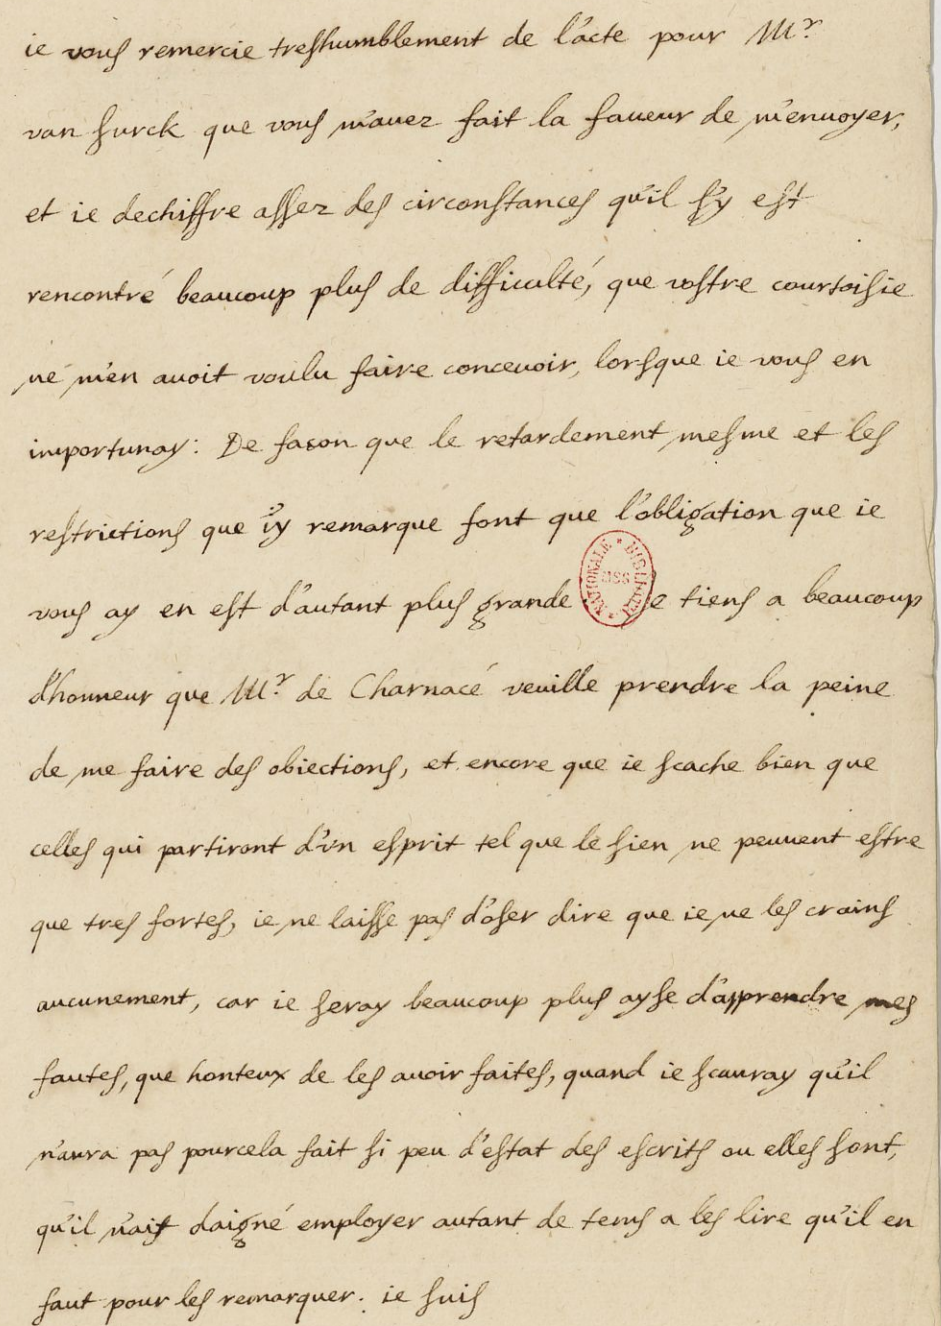 ie vous remercie treshumblement de l'acte pour Mr.
van surck que vous m'auez fait la faueur de m'enuoyer,
et ie dechiffre assez des circonstances qu'il s'y est
rencontré beaucoup plus de difficulté, que vostre courtoisie
ne m'en auoit voulu faire conceuoir, lorsque ie vous en
importunay: De façon que le retardement mesme et les
restrictions que i'y remarque font que l'obligation que ie
vous ay en est d'autant plus grande. ie tiens a beaucoup
d'honneur que Mr. de Charnacé veuille prendre la peine
de me faire des obiections, et encore que ie scache bien que
celles qui partiront d'vn esprit tel que le sien ne peuuent estre
que tres fortes, ie ne laisse pas d'oser dire que ie ne les crains
aucunement, car ie seray beaucoup plus ayse d'apprendre mes
fautes, que honteux de les auoir faites, quand ie scauray qu'il
n'aura pas pourcela fait si peu d'estat des escrits ou elles sont,
qu'il n'ait daigné employer autant de tems a les lire qu'il en
faut pour les remarquer. ie suis
BIBLIOTH. NATIONALE
MSS